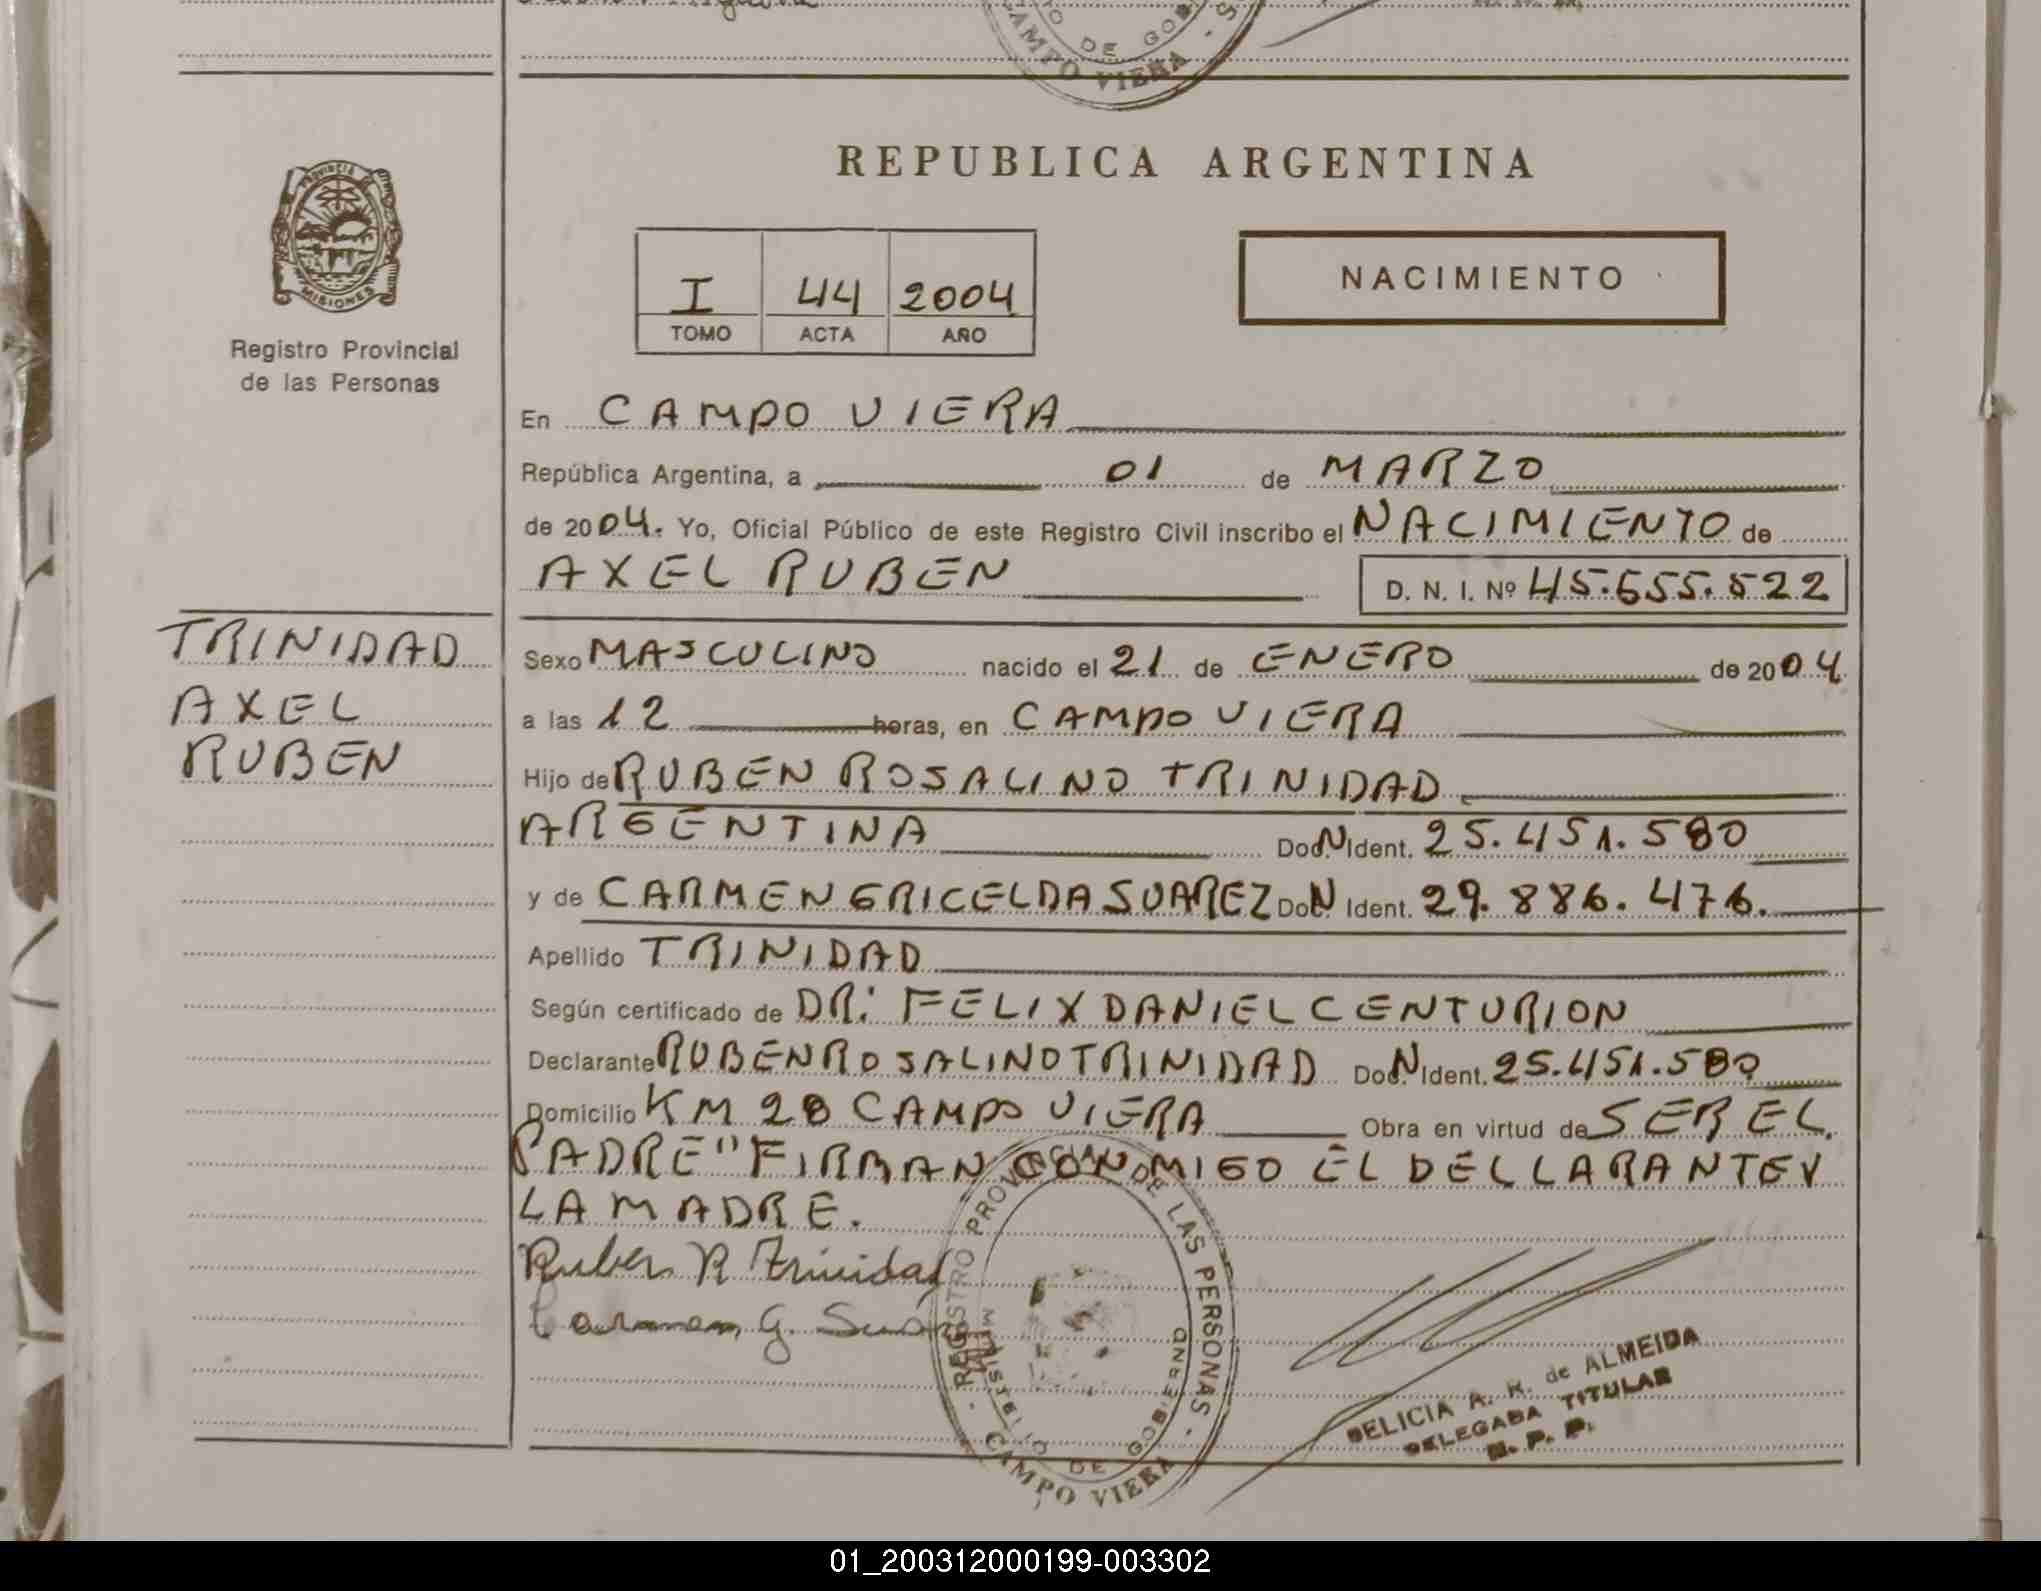 CAMPO VIERA
DE GOB
PROVINCIA DE
MISIONES
Registro Provincial
de las Personas
REPUBLICA ARGENTINA
I 44 2004
TOMO ACTA AÑO
NACIMIENTO
En CAMPO VIERA
República Argentina, a 01 de MARZO
de 2004. Yo, Oficial Público de este Registro Civil inscribo el NACIMIENTO de
AXEL RUBEN D. N. I. Nº 45.655.522
TRINIDAD
AXEL
RUBEN
Sexo MASCULINO nacido el 21 de ENERO de 2004.
a las 12 horas, en CAMPO VIERA
Hijo de RUBEN ROSALINO TRINIDAD
ARGENTINA Doc.N Ident. 25.451.580
y de CARMEN GRICELDA SUAREZ Doc.N Ident. 29.886.476.
Apellido TRINIDAD
Según certificado de DR: FELIX DANIEL CENTURION
Declarante RUBEN ROSALINO TRINIDAD Doc.N Ident. 25.451.580
Domicilio KM 28 CAMPO VIERA Obra en virtud de SER EL
PADRE" FIRMAN CONMIGO EL DECLARANTE Y
LA MADRE.
Ruben R Trinidad
Carmen G. Suá
REGISTRO PROVINCIAL DE LAS PERSONAS
MINISTERIO DE GOBIERNO
CAMPO VIERA
DELICIA A. R. de ALMEIDA
DELEGADA TITULAR
R. P. P.
01_200312000199-003302